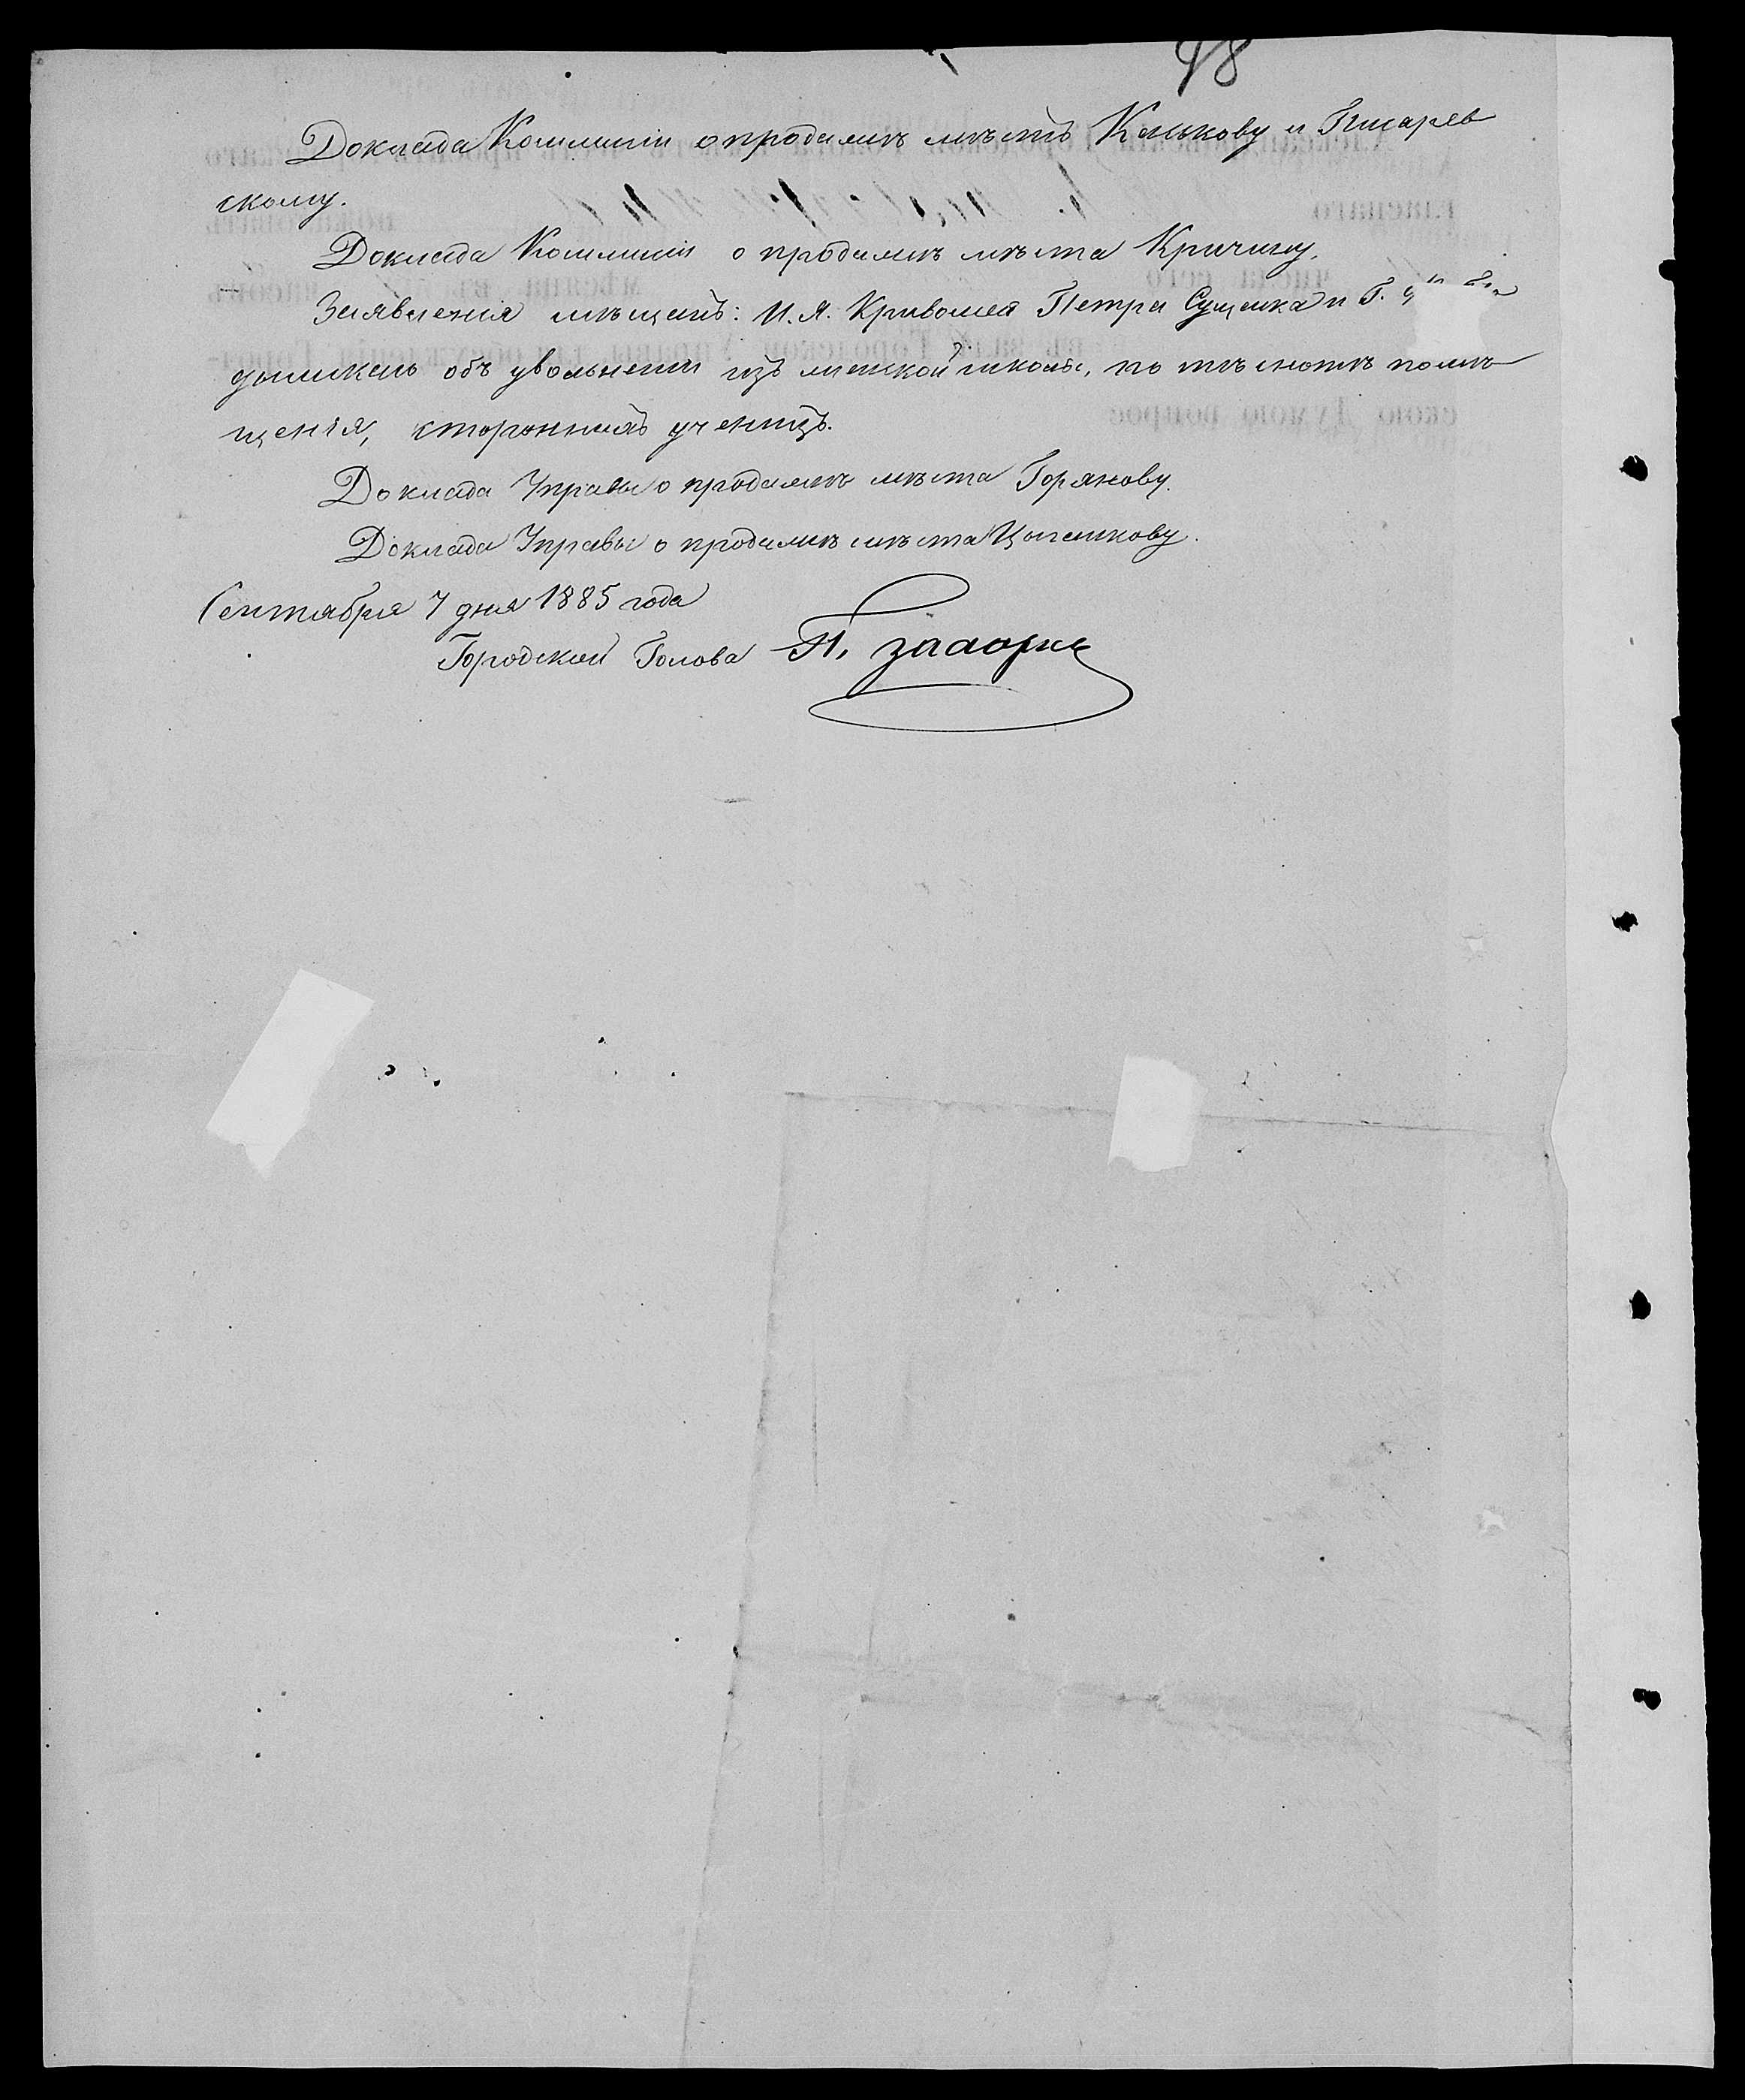 98
Доклада Коммиссіи о продажѣ мѣстъ Канькову и Писарев
скому.
Доклада Коммиссіи о продажѣ мѣста Кричину.
Заявленія мѣщанъ: И. Я. Кривошея Петра Сущенка и Г.
объ увольненіи изъ школы, по тѣснотѣ помѣ
щенія, стороннихъ ученицъ.
Доклада Управы о продажѣ мѣста Горянову.
Доклада Управы о продажѣ мѣста Цыганкову.
Сентября 7 дня 1885 года
Городской Голова П.